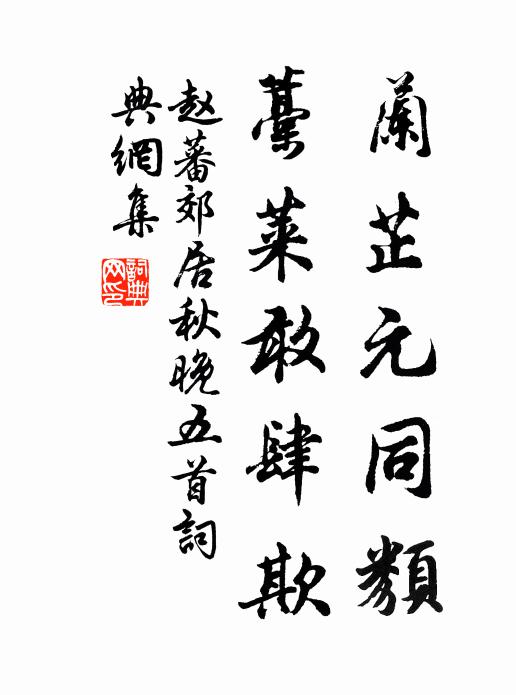 蘭芷元同類
藁萊敢肆欺
赵蕃郊居秋晚五首詞
典網集
詞典网印